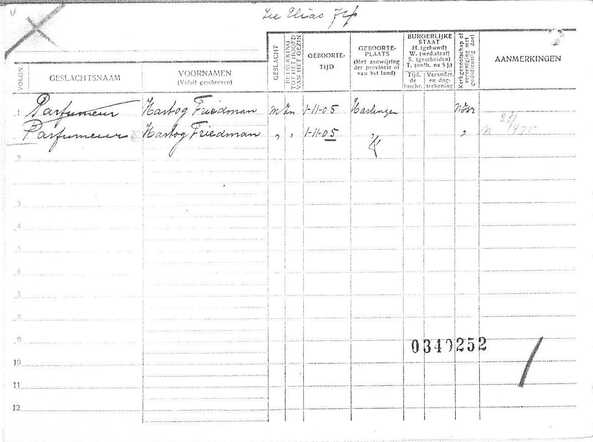 Zie Elias
VOLGNO.
GESLACHTSNAAM
VOORNAMEN
(Voluit geschreven)
GESLACHT
GEBOORTE-
TIJD
GEBOORTE-
PLAATS
(Met aanwijzing
der provincie of
van het land)
BURGERLIJKE
STAAT
H. (gehuwd)
W. (wed.staat)
S. (gescheiden)
Kerkgenootschap of
AANMERKINGEN
1 Parfumeur Hartog Friedman m 1-11-05 Harlingen
Parfumeur Hartog Friedman " " 1-11-05 "
2
3
4
5
6
7
8
9
0340252
10
11
12